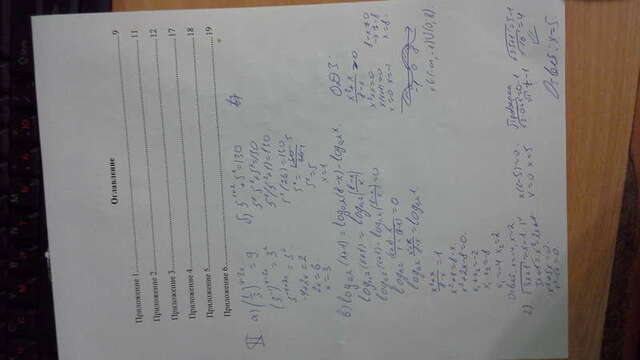 Оглавление
Приложение 1 9
Приложение 2 11
Приложение 3 12
Приложение 4 17
Приложение 5 18
Приложение 6 19
II а) (1/3)^(4-2x) = 9
(3^-1)^(4-2x) = 3^2
3^(-4+2x) = 3^2
-4+2x = 2
2x = 6
x = 3
б) 5^(x+2) + 5^x = 130
5^x · 5^2 + 5^x = 130
5^x (5^2+1) = 130
5^x (26) = 130
5^x = 5
x = 1
в) log0,2 (x+1) = log0,2 (8-x) - log0,2 x
log0,2 (x+1) = log0,2 (8-x)/x
log0,2 (x+1) - log0,2 (8-x)/x = 0
= 0
log0,2 (x²+x)/(8-x) = log0,2 1
(x²+x)/(8-x) = 1
x²+x = 8-x
x²+2x-8 = 0
x1+x2 = -2
x1·x2 = -8
x1 = -4 x2 = 2
Ответ: x=-4, x=2
ОДЗ
(x²+x)/(8-x) > 0
x²+x = 0
x(x+1) = 0
8-x ≠ 0
x = 8
2) √3x+1 = x-1
3x+1 = x²-2x+1
x²-5x = 0
x(x-5) = 0
x=0 x=5
Проверка
√3·0+1 = 0-1
√1 ≠ -1
√3·5+1 = 5-1
= 4
Ответ: x=5